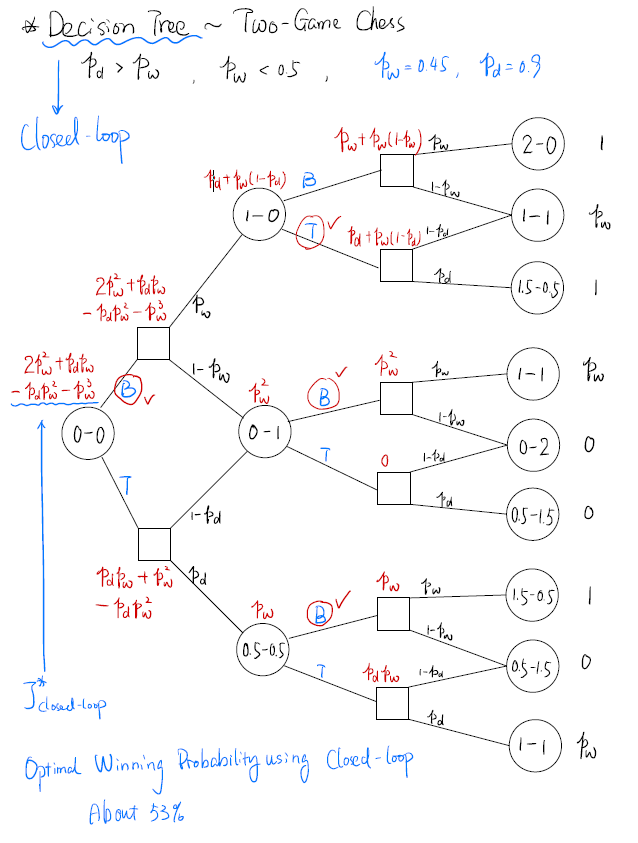 * Decision Tree ~ Two-Game Chess
p_d > p_w , p_w < 0.5 , p_w = 0.45, p_d = 0.9
Closed-loop
p_w + p_w(1-p_w)
p_w
2-0
1
p_d + p_w(1-p_d)
B
1-p_w
1-0
1-1
p_w
T ✓
p_d + p_w(1-p_d)
1-p_d
p_d
1.5-0.5
1
2p_w² + p_d p_w
- p_d p_w² - p_w³
p_w
1-p_w
2p_w² + p_d p_w
- p_d p_w² - p_w³
B ✓
0-0
T
p_w²
0-1
B ✓
p_w²
p_w
1-1
p_w
1-p_w
0-2
0
T
0
1-p_d
p_d
0.5-1.5
0
1-p_d
p_d p_w + p_w²
- p_d p_w²
p_d
p_w
0.5-0.5
B ✓
p_w
p_w
1.5-0.5
1
1-p_w
0.5-1.5
0
T
p_d p_w
1-p_d
p_d
1-1
p_w
J*closed-loop
Optimal Winning Probability using Closed-loop
About 53%